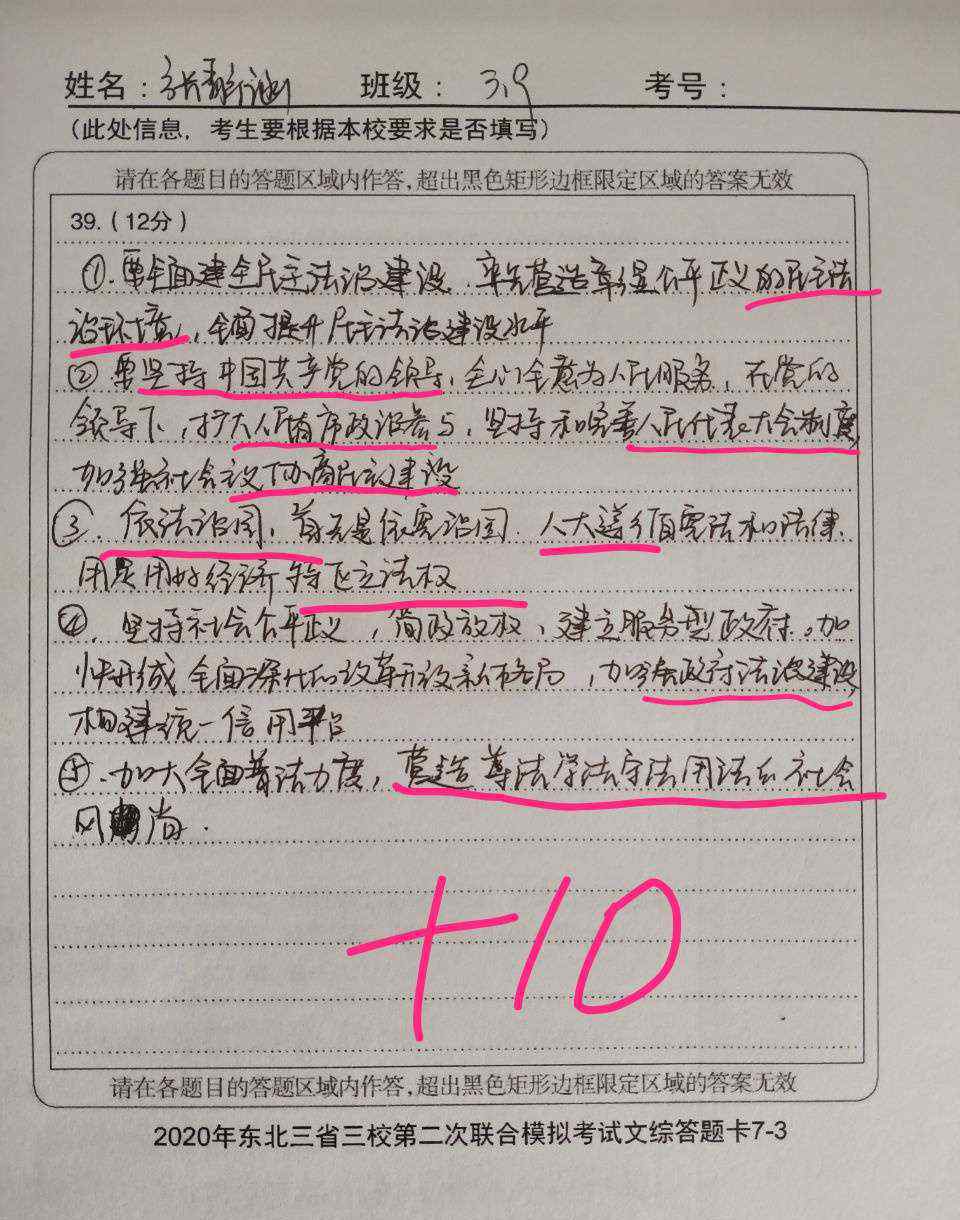 姓名：张 班级：3.9 考号：
（此处信息，考生要根据本校要求是否填写）
请在各题目的答题区域内作答，超出黑色矩形边框限定区域的答案无效
39.（12分）
①.要全面建全民主法治建设，率先营造彰显公平正义的民主法
治环境，全面提升民主法治建设水平
②要坚持中国共产党的领导，全心全意为人民服务，在党的
领导下，扩大人民有序政治参与，坚持和完善人民代表大会制度
加强社会主义协商民主建设
③.依法治国，首先是依宪治国，人大遵循宪法和法律，
用足用好经济特区立法权
④.坚持社会公平正义，简政放权，建立服务型政府。加
快形成全面深化的改革开放新格局，加强政府法治建设
构建统一信用平台
⑤.加大全面普法力度，营造尊法学法守法用法的社会
风尚.
+10
请在各题目的答题区域内作答，超出黑色矩形边框限定区域的答案无效
2020年东北三省三校第二次联合模拟考试文综答题卡7-3